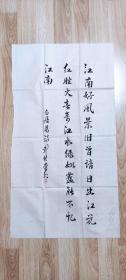 江南好风景旧曾谙日出江花
红胜火春来江水绿如蓝能不忆
江南
白居易诗